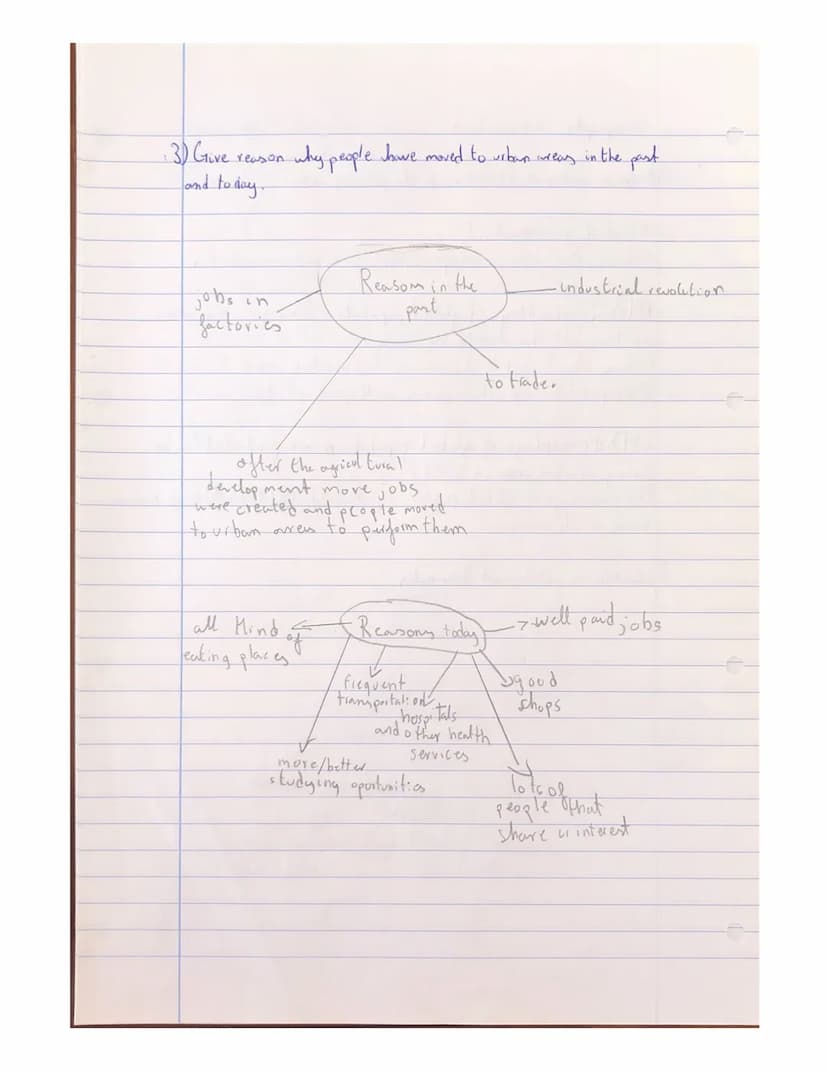 3) Give reason why people have moved to urban areas in the past
and today.
Reasons in the
past
industrial revolution
jobs in
factories
to trade.
after the agricultural
development more jobs
were created and people moved
to urban areas to perform them
Reasons today
well paid jobs
all kind of
eating places
frequent
transportation
good
shops
hospitals
and other health
services
more/better
studying oportunities
lots of
people that
share interest